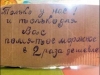 Только у нас
и только для
Вас
памятные морожное
в 2 раза дешевле